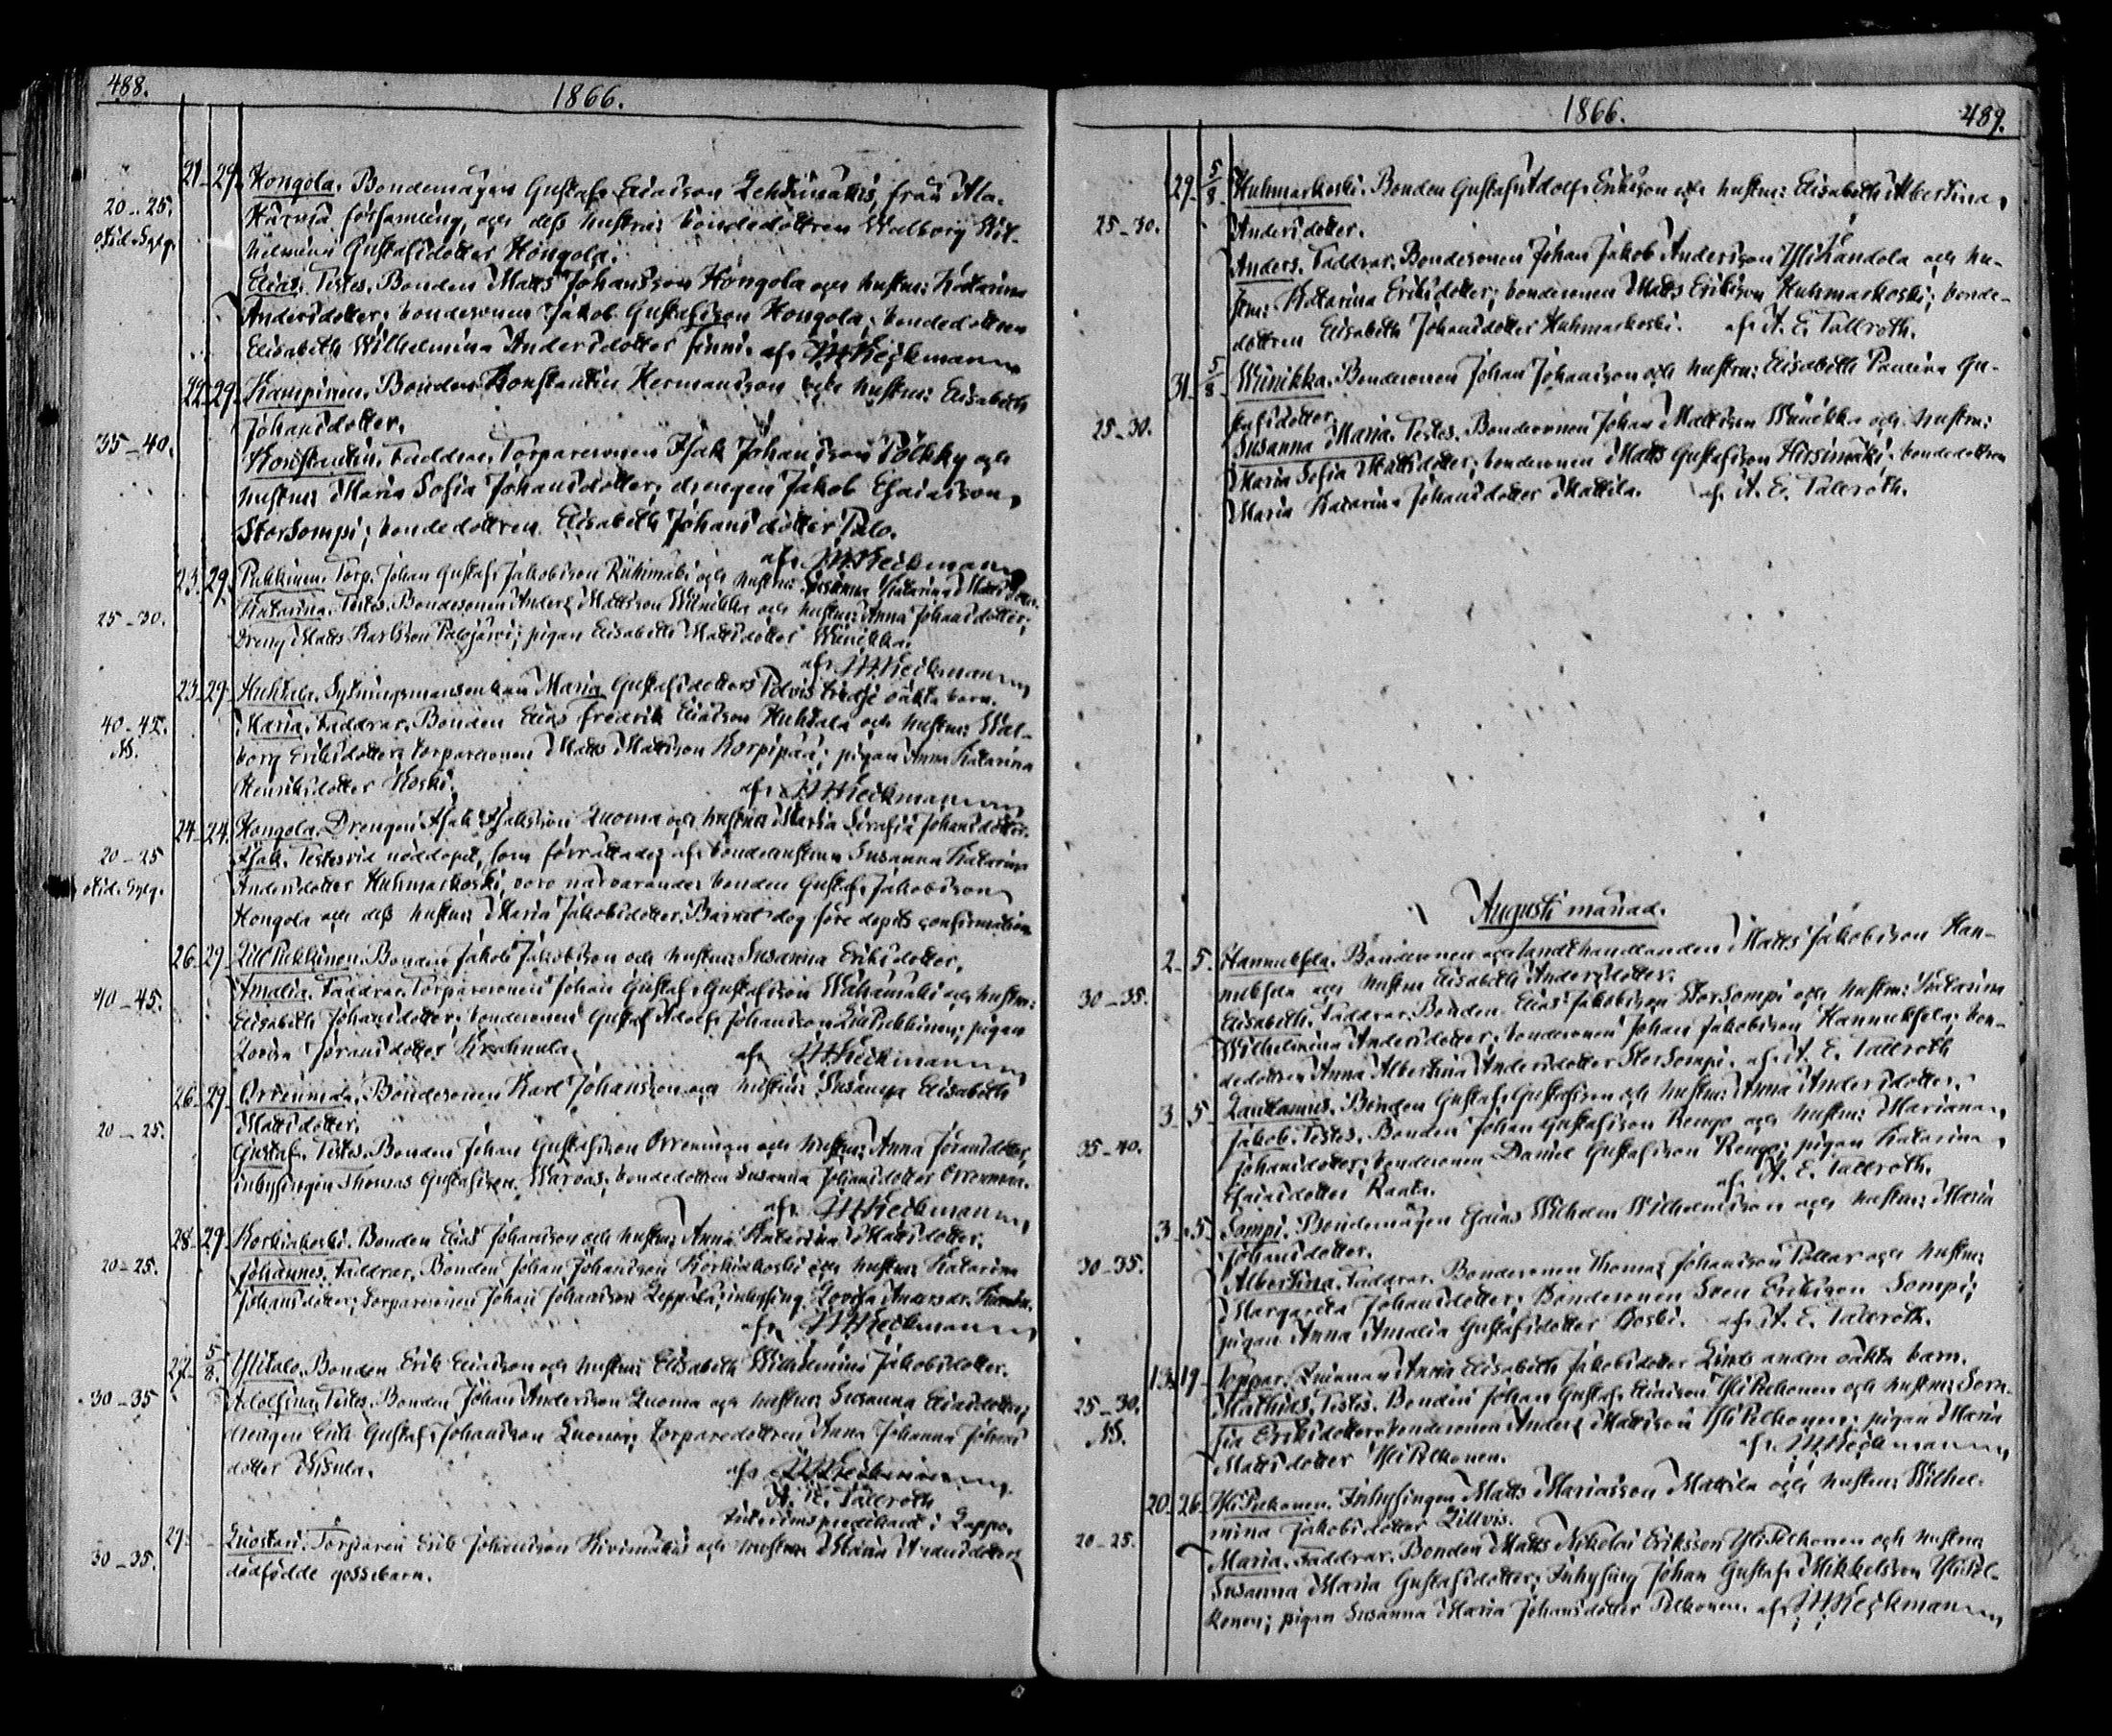 488.
1866.
21 - 29. Hongola. Bondemågen Gustaf Eliasson Lehtimäki, från Ala-
20-25. Härmä församling, och dess hustru: bondedottren Walborg Wil-
helmina Gustafsdotter Hongola.
Elias. Testes. Bonden Matts Johansson Hongola och hustru: Katarina
Andersdotter; bondesonen Jakob Gustafsson Hongola; bondedottren
Elisabeth Wilhelmina Andersdotter Finni. af
22 - 29. Kampinen. Bonden Konstantin Hermansson och hustru: Elisabeth
Johansdotter.
35-40. Konstantin. Faddrar. Torparesonen Isak Johansson Pölkky och
hustru: Maria Sofia Johansdotter; drengen Jakob Esaiasson
StorSompi; bondedottren Elisabeth Johansdotter Palo.
af
23. 29. Pukkinen. Torp. Johan Gustaf Jakobsson Riihimäki och hustru: Susanna Katarina Matts
25-30. Katarina. Testes. Bondesonen Anders Mattsson Wiinikka och hustru: Anna Johansdotter;
Dreng Matts Karlsson Palojärvi; pigan Elisabeth Mattsdotter Wiinikka.
af
23. 29. Huhtala. Sytningsmansenkan Maria Gustafsdotters tredje oäkta barn.
40-45. Maria. Faddrar. Bonden Elias Fredrik Eliasson Huhtala och hustru: Wal-
borg Eriksdotter; torparesonen Matts Mattsson Korpipää; pigan Anna Katarina
Henriksdotter Koski. af
24 - 24. Hongola. Drengen Isak Isaksson Luoma och hustru Maria Serafia Johansdotter.
20-25 Isak. Testes vid nöddopet, som förrättades af bondehustrun Susanna Katarina
Andersdotter Huhmarkoski, voro närvarande: bonden Gustaf Jakobsson
Hongola och dess hustru: Maria Jakobsdotter. Barnet dog före dopets confirmation
26 - 29. LillPukkinen. Bonden Jakob Jakobsson och hustru: Susanna Eriksdotter.
40-45. Amalia. Faddrar. Torparesonen Johan Gustaf Gustafsson Wähämäki och hustru:
Elisabeth Johansdotter; bondesonen Gustaf Adolf Johansson LillPukkinen; pigan
Lovisa Göransdotter
af
26 - 29. Orrenmaa. Bondesonen Karl Johansson och hustru: Susanna Elisabeth
Mattsdotter.
20-25. Gustaf. Testes. Bonden Johan Gustafsson Orrenmaa och hustru: Anna Göransdotter;
inhysingen Thomas Gustafsson Warvas; bondedottren Susanna Johansdotter Orrenmaa.
af
28 - 29. Korkiakoski. Bonden Elias Johansson och hustru: Anna Katarina Mattsdotter.
20-25. Johannes. Faddrar. Bonden Johan Johansson Korkiakoski och hustru: Katarina
Johansdotter; torparesonen Johan Johansson Leppälä; inhysing Lovisa Andersdr.
af
27 - 5/8. Ylitalo. Bonden Erik Eliasson och hustru: Elisabeth Wilhelmina Jakobsdotter.
30-35 Adolfina. Testes. Bonden Johan Andersson Luoma och hustru: Susanna Eliasdotter;
drengen Erik Gustaf Johansson Luoma; torparedottren Anna Johanna Johans-
dotter af
A. E. Tallroth
Interimspredikant i Lappo.
29 - Luostari. Torparen Erik Johansson Kivimäki och hustru Maria Andersdotters
30-35. dödfödde gossebarn.
1866.
489.
29 - 5/8 Huhmarkoski. Bonden Gustaf Adolf Eriksson och hustru: Elisabeth Albertina
25-30. Andersdotter.
Anders. Faddrar. Bondesonen Johan Jakob Andersson YliKandola och hu-
stru: Katarina Eriksdotter; bondesonen Matts Eriksson Huhmarkoski; bonde-
dottren Elisabeth Johansdotter Huhmarkoski. af A. E. Tallroth.
31 - 5/8 Wiinikka. Bondesonen Johan Johansson och hustru: Elisabeth Paulina Gu-
stafsdotter
25-30. Susanna Maria. Testes. Bondesonen Johan Mattsson Wiinikka och hustru:
Maria Sofia Mattsdotter; bondesonen Matts Gustafsson Hirsimäki; bondedottren
Maria Katarina Johansdotter Mattila. af A. E. Tallroth.
Augusti månad.
2 - 5. Hannuksela. Bondesonen och landthandlanden Matts Jakobsson Han-
nuksela och hustru Elisabeth Andersdotter.
30-35. Elisabeth. Faddrar. Bonden Elias Jakobsson StorSompi och hustru: Katarina
Wilhelmina Andersdotter; bondesonen Johan Jakobsson Hannuksela; bon-
dedottren Anna Albertina Andersdotter StorSompi. af A. E. Tallroth
3 - 5. Lautamus. Bonden Gustaf Gustafsson och hustru: Anna Andersdotter.
35-40. Jakob. Testes. Bonden Johan Gustafsson Rengo och hustru: Mariana
Johansdotter; bondesonen Daniel Gustafsson Rengo; pigan Katarina
Esaiasdotter Ranta. af A. E. Tallroth.
3 - 5. Sompi. Bondemågen Esaias Wilhelm Wilhelmsson och hustru: Maria
Johansdotter.
30-35. Albertina. Faddrar. Bondesonen Thomas Johansson Pollari och hustru:
Margareta Johansdotter; Bondesonen Sven Eriksson Sompi;
pigan Anna Amalia Gustafsdotter Koski. af A. E. Tallroth.
13 - 19. Toppari. Qvinnan Anna Elisabeth Jakobsdotter Linds andra oäkta barn.
25-30. Mathias. Testes. Bonden Johan Gustaf Eliasson YliPelkonen och hustru: Sera-
fia Eriksdotter; bondesonen Anders Mattsson YliPelkonen; pigan Maria
Mattsdotter YliPelkonen. af
20. 26. YliPelkonen. Inhysingen Matts Mariasson Mattila och hustru: Wilhel-
mina Jakobsdotter Lillvis.
20-25. Maria. Faddrar. Bonden Matts Nikolai Eriksson YliPelkonen och hustru
Susanna Maria Gustafsdotter; Inhysing Johan Gustaf Mikkelsson YliPel-
konen; pigan Susanna Maria Johansdotter Pelkonen. af